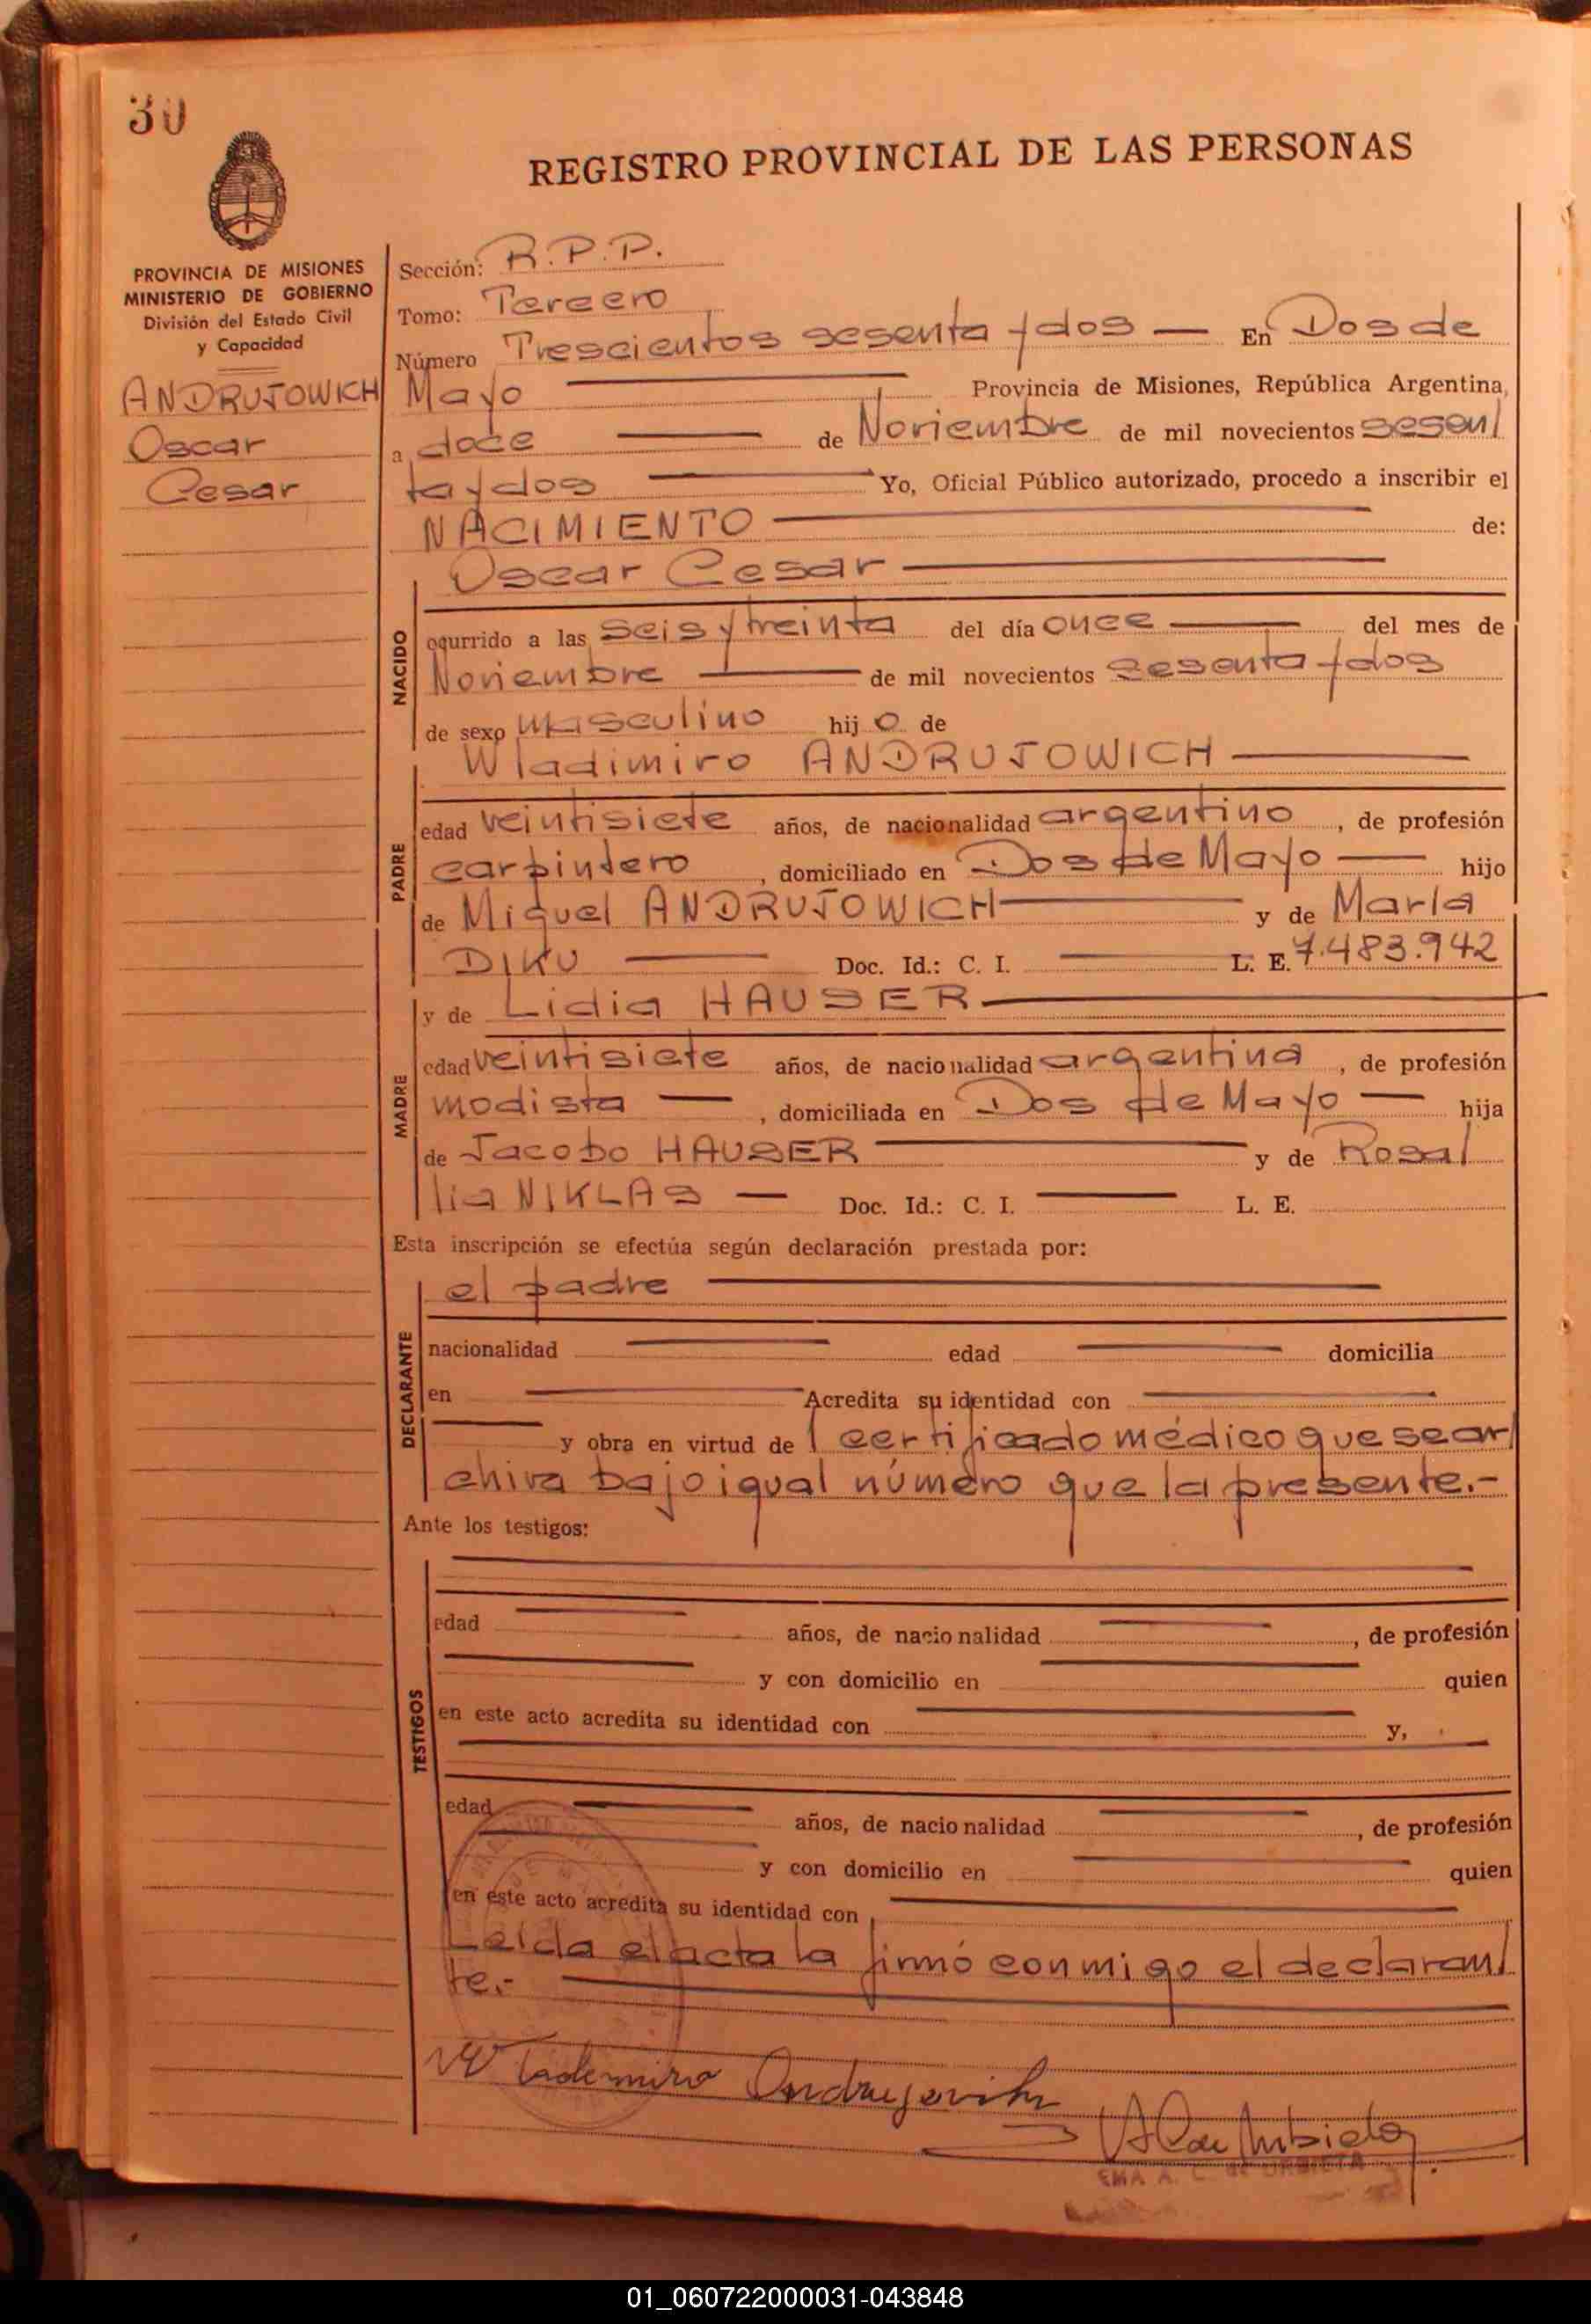 30
REGISTRO PROVINCIAL DE LAS PERSONAS
PROVINCIA DE MISIONES
MINISTERIO DE GOBIERNO
División del Estado Civil
y Capacidad
ANDRUJOWICH
Oscar
Cesar
Sección: R.P.P.
Tomo: Tercero
Número Trescientos sesenta y dos — En Dos de
Mayo — Provincia de Misiones, República Argentina,
a doce — de Noviembre de mil novecientos sesen/
ta y dos — Yo, Oficial Público autorizado, procedo a inscribir el
NACIMIENTO — de:
Oscar Cesar —
NACIDO
ocurrido a las seis y treinta del día once — del mes de
Noviembre — de mil novecientos sesenta y dos
de sexo masculino hij o de
Wladimiro ANDRUJOWICH —
PADRE
edad veintisiete años, de nacionalidad argentino, de profesión
carpintero, domiciliado en Dos de Mayo — hijo
de Miguel ANDRUJOWICH — y de María
DIKU — Doc. Id.: C. I. — L. E. 7.483.942
y de Lidia HAUSER —
MADRE
edad veintisiete años, de nacionalidad argentina, de profesión
modista —, domiciliada en Dos de Mayo — hija
de Jacobo HAUSER — y de Rosa/
lia NIKLAS — Doc. Id.: C. I. — L. E.
Esta inscripción se efectúa según declaración prestada por:
el padre —
DECLARANTE
nacionalidad — edad — domicilia
en — Acredita su identidad con —
— y obra en virtud de certificado médico que se ar/
chiva bajo igual número que la presente.-
Ante los testigos:
TESTIGOS
edad — años, de nacionalidad —, de profesión
— y con domicilio en — quien
en este acto acredita su identidad con — y,
edad — años, de nacionalidad —, de profesión
— y con domicilio en — quien
en este acto acredita su identidad con —
Leída el acta la firmó conmigo el declaran/
te.- —
Wlademiro Andrujovich
EMA A. C. de URBIETA
01_060722000031-043848